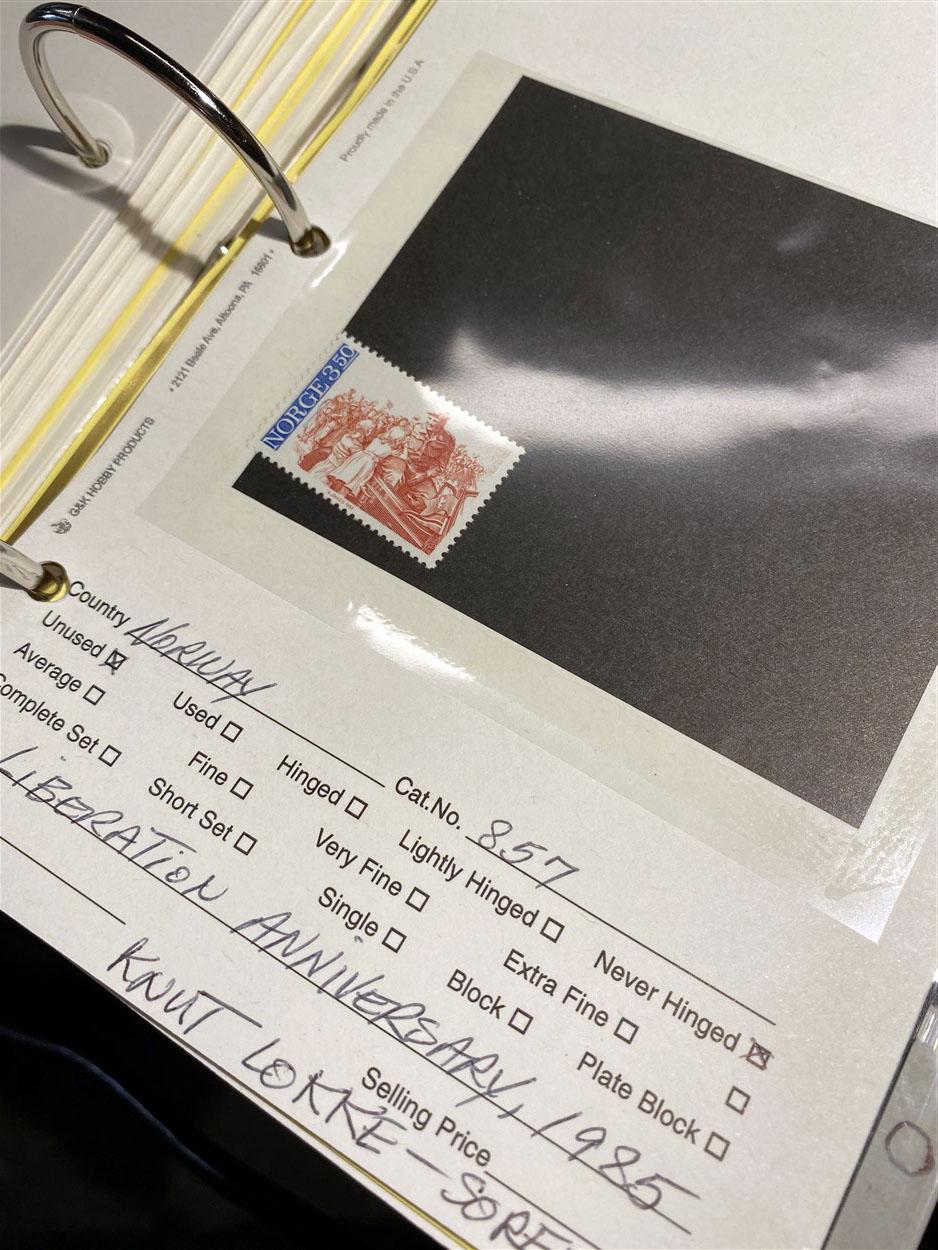 Proudly made in the U.S.A
• 2121 Beale Ave, Altoona, PA 16601 •
G&K HOBBY PRODUCTS
NORGE 3.50
Country NORWAY Cat.No. 857
Unused ☒ Used ☐ Hinged ☐ Lightly Hinged ☐ Never Hinged ☒
Average ☐ Fine ☐ Very Fine ☐ Extra Fine ☐ ☐
Complete Set ☐ Short Set ☐ Single ☐ Block ☐ Plate Block ☐
LIBERATION ANNIVERSARY, 1985
Selling Price
KNUT LOKKE-